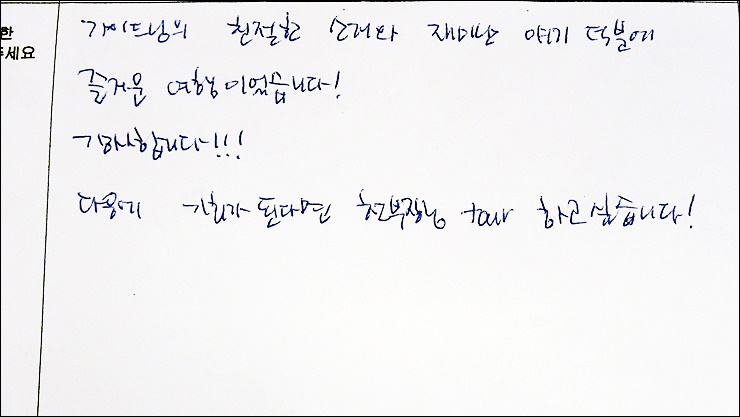 한
주세요
가이드님의 친절한 소개와 재미난 얘기 덕분에
즐거운 여행이었습니다!
감사합니다!!!
다음에 기회가 된다면 현부장님 tour 하고싶습니다!